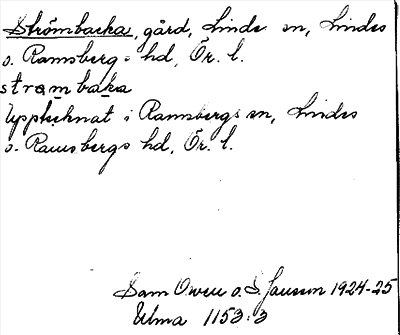 Strömbacka, gård, Linde sn, Lindes
o. Ramsbergs hd, Ör. l.
strømbaka
Upptecknat i Ramsbergs sn, Lindes
o. Ramsbergs hd, Ör. l.
Sam Owen o. S. Janson 1924-25
Ulma 1153:3